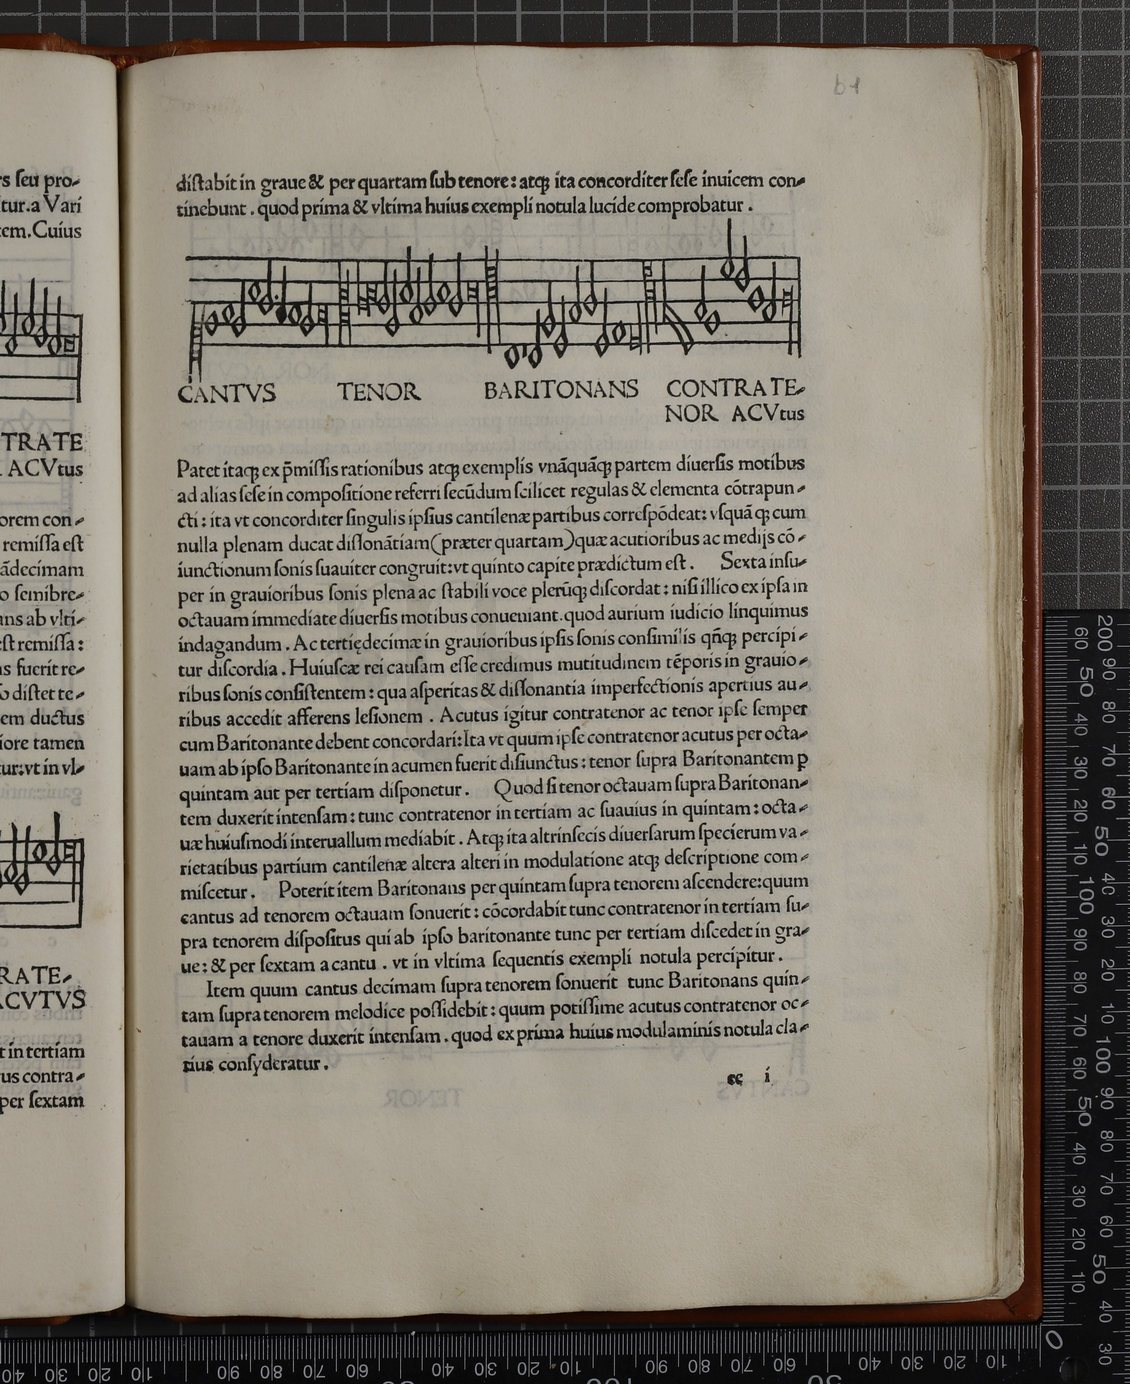 b1
s seu pro-
tur.a Vari
em.Cuius
TRATE
ACVtus
orem con-
remissa est
ãdecimam
o semibre-
ans ab vlti-
est remissa:
s fuerit re-
o distet te-
em ductus
iore tamen
tur:vt in vl-
RATE-
ACVTVS
t in tertiam
us contra-
per sextam
distabit in graue & per quartam sub tenore: atqꝫ ita concorditer sese inuicem con-
tinebunt. quod prima & vltima huius exempli notula lucide comprobatur.
CANTVS TENOR BARITONANS CONTRATE-
NOR ACVtus
Patet itaqꝫ ex p̃missis rationibus atqꝫ exemplis vnãquãqꝫ partem diuersis motibus
ad alias sese in compositione referri secũdum scilicet regulas & elementa cõtrapun-
cti: ita vt concorditer singulis ipsius cantilenæ partibus correspõdeat: vsquã qꝫ cum
nulla plenam ducat dissonãtiam(præter quartam)quæ acutioribus ac medijs cõ-
iunctionum sonis suauiter congruit:vt quinto capite prædictum est. Sexta insu-
per in grauioribus sonis plena ac stabili voce plerũqꝫ discordat: nisi illico ex ipsa in
octauam immediate diuersis motibus conueniant.quod aurium iudicio linquimus
indagandum. Ac tertiędecimæ in grauioribus ipsis sonis consimilis qñqꝫ percipi-
tur discordia. Huiuscæ rei causam esse credimus mutitudinem tẽporis in grauio-
ribus sonis consistentem: qua asperitas & dissonantia imperfectionis apertius au-
ribus accedit afferens lesionem. Acutus igitur contratenor ac tenor ipse semper
cum Baritonante debent concordari:Ita vt quum ipse contratenor acutus per octa-
uam ab ipso Baritonante in acumen fuerit disiunctus: tenor supra Baritonantem ꝑ
quintam aut per tertiam disponetur. Quod si tenor octauam supra Baritonan-
tem duxerit intensam: tunc contratenor in tertiam ac suauius in quintam: octa-
uæ huiusmodi interuallum mediabit. Atqꝫ ita altrinsecis diuersarum specierum va-
rietatibus partium cantilenæ altera alteri in modulatione atqꝫ descriptione com-
miscetur. Poterit item Baritonans per quintam supra tenorem ascendere:quum
cantus ad tenorem octauam sonuerit: cõcordabit tunc contratenor in tertiam su-
pra tenorem dispositus qui ab ipso baritonante tunc per tertiam discedet in gra-
ue: & per sextam a cantu. vt in vltima sequentis exempli notula percipitur.
Item quum cantus decimam supra tenorem sonuerit tunc Baritonans quin-
tam supra tenorem melodice possidebit: quum potissime acutus contratenor oc-
tauam a tenore duxerit intensam.quod ex prima huius modulaminis notula cla-
rius consyderatur.
cc i